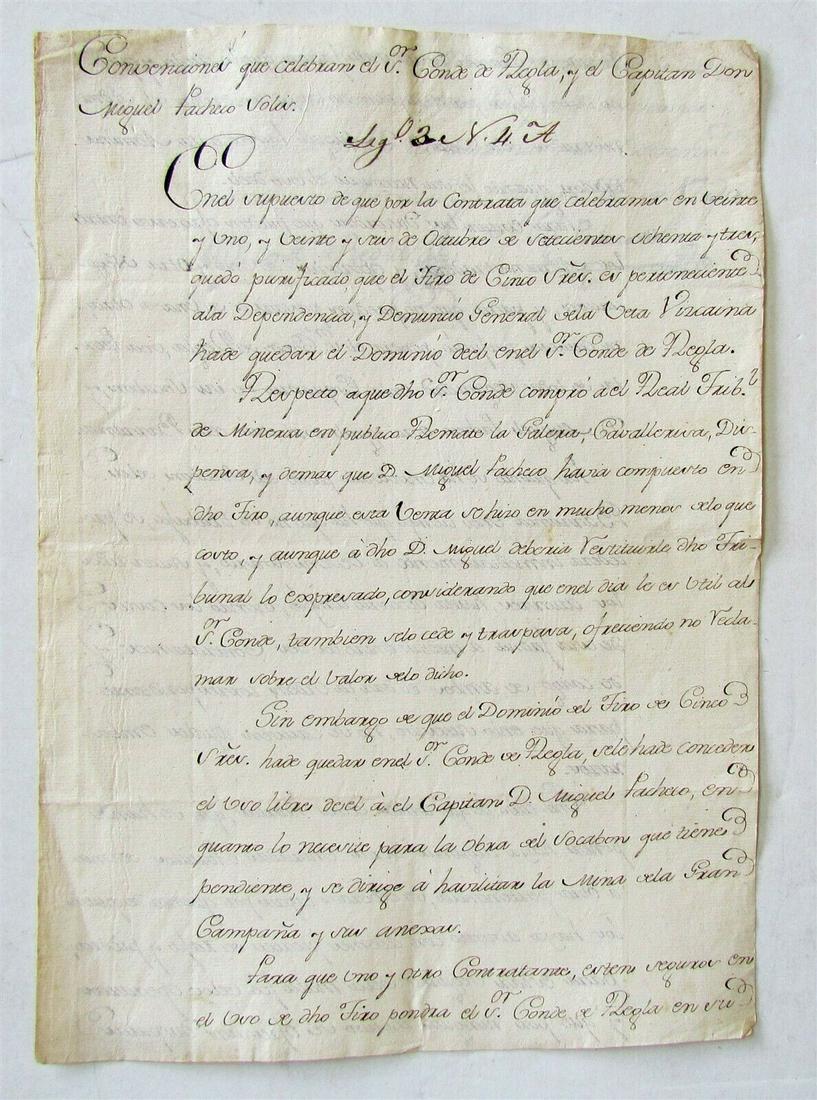 Convenciones que celebran el S.or Conde de Regla, y el Capitan Don
Miguel Pacheco Solis.
Leg.o 3 N. 4. A
En el supuesto de que por la Contrata que celebramos en veinte
y uno, y veinte y seis de Octubre de setecientos ochenta y tres,
quedó purificado, que el Tiro de Cinco Sres. es perteneciente
ala Dependencia, y Denuncio General dela Veta Vizcaina
hade quedar el Dominio deel enel S.or Conde de Regla.
Respecto aque dho S.or Conde compró ael Real Trib.l
de Mineria en publico Remate la Galera, Cavalleriza, Dis-
pensa, y demas que D. Miguel Pacheco havia compuesto en
dho Tiro, aunque esta Venta sehizo en mucho menos delo que
costo, y aunque à dho D. Miguel deberia restituirle dho Tri-
bunal lo expresado, considerando que enel dia le es util al
S.or Conde, tambien selo cede y traspasa, ofreciendo no recla-
mar sobre el valor delo dicho.
Sin embargo de que el Dominio del Tiro de Cinco
Sres. hade quedar enel S.or Conde de Regla, sele hade conceder
el uso libre deel à el Capitan D. Miguel Pacheco, en
quanto lo necesite para la obra del Socabon que tiene
pendiente, y se dirige à havilitar la Mina dela Gran
Campaña y sus anexas.
Para que uno y otro Contratante, esten seguros en
el uso de dho Tiro pondra el S.or Conde de Regla en su